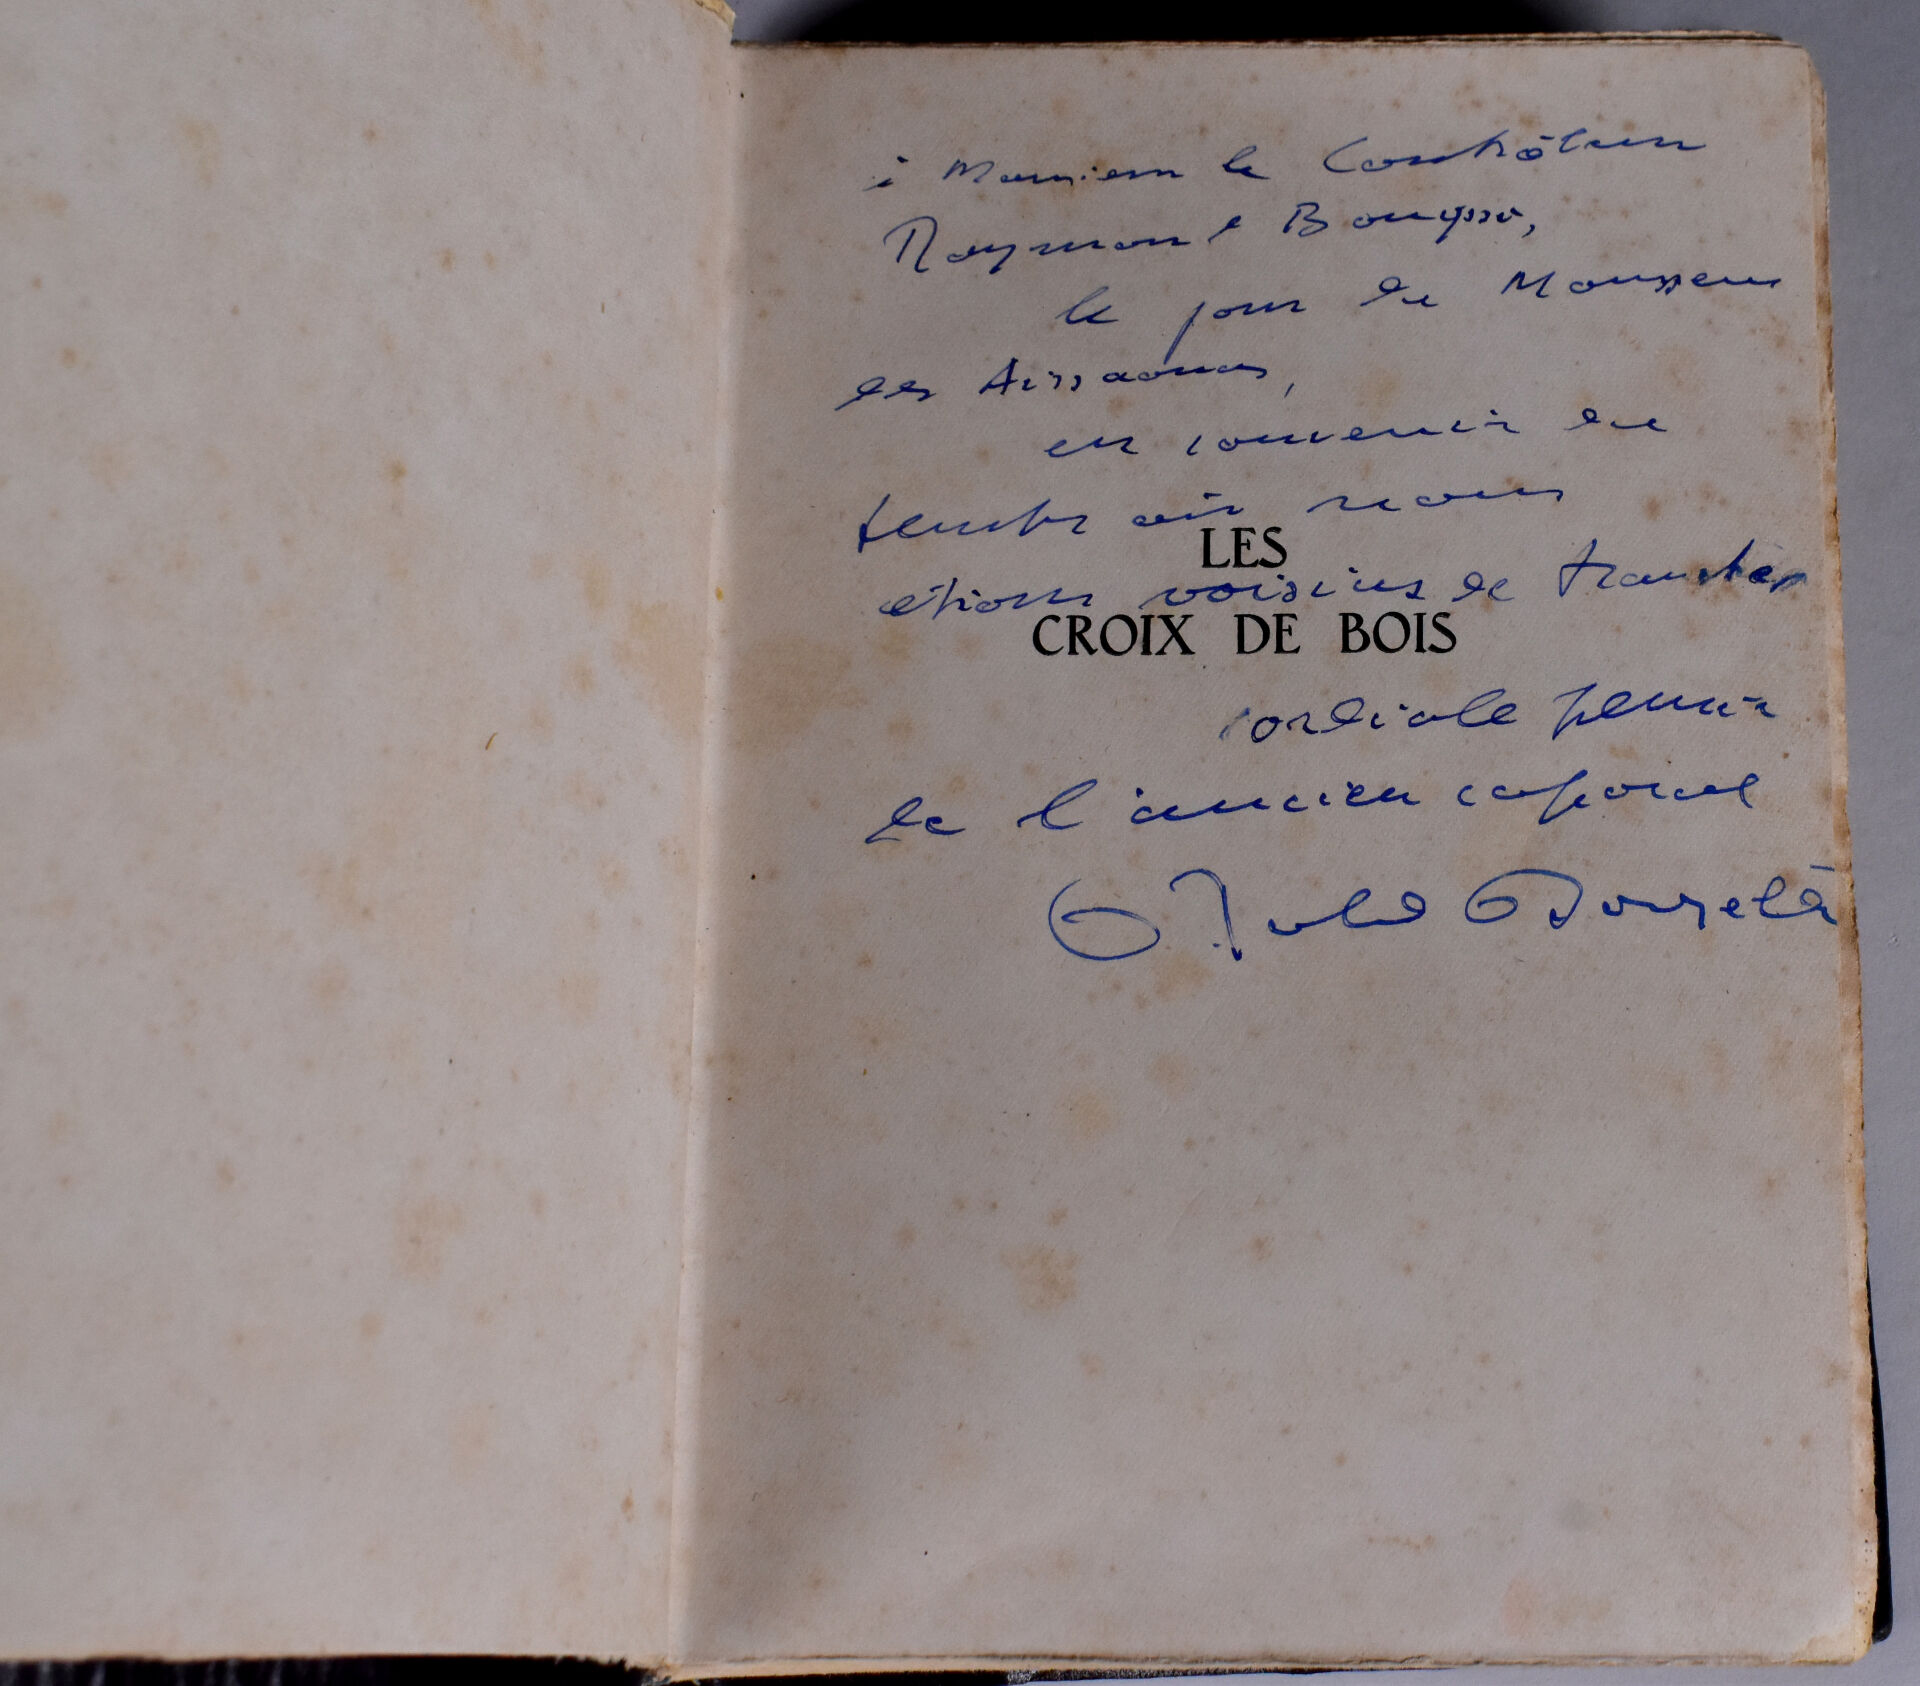 à Monsieur le Contrôleur
Raymond
le jour du Moussem
des Aissaouas,
en souvenir du
temps où nous
LES
étions voisins de tranchée
CROIX DE BOIS
cordiale pensée
de l'ancien caporal
Roland Dorgelès